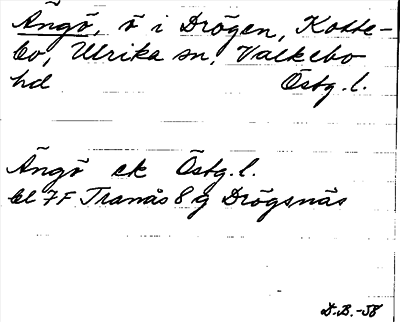 Ängö, ö i Drögen, Kotte-
bo, Ulrika sn, Valkebo
hd Östg.l.
Ängö ek Östg.l.
bl 7F Tranås 8g Drögsnäs
D.B.-58